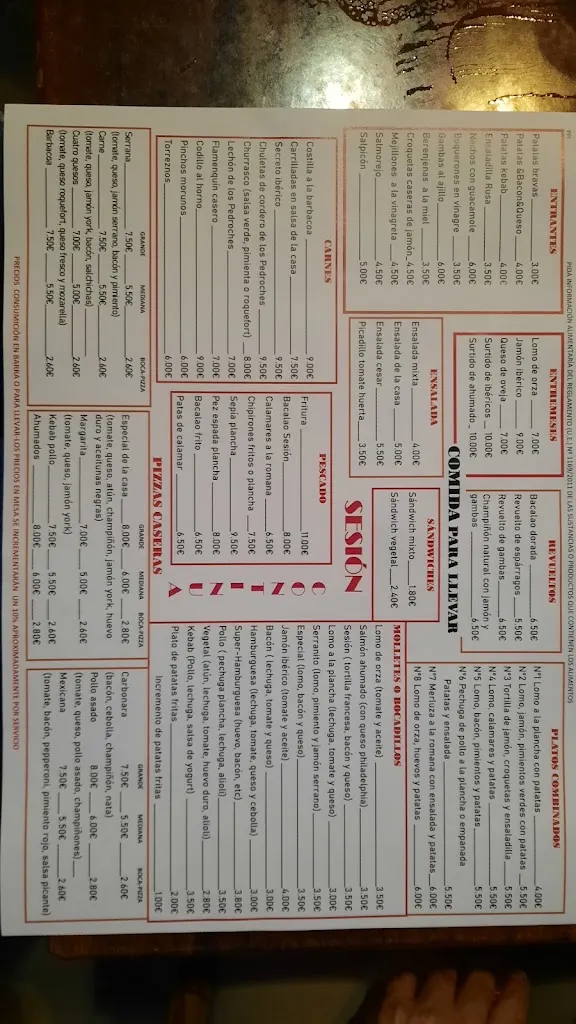 PIDA INFORMACIÓN ALIMENTARIA DEL REGLAMENTO (U.E.) Nº 1169/2011 DE LAS SUSTANCIAS O PRODUCTOS QUE CONTIENEN LOS ALIMENTOS
ENTRANTES
Patatas bravas 3.00€
Patatas &Bacon&Queso 4.00€
Patatas kebab 4.00€
Ensaladilla Rusa 3.50€
Nachos con guacamole 6.00€
Boquerones en vinagre 3.50€
Gambas al ajillo 6.00€
Berenjenas a la miel 3.50€
Croquetas caseras de jamón 4.50€
Mejillones a la vinagreta 4.50€
Salmorejo 4.50€
Salpicón 5.00€
ENTREMESES
Lomo de orza 7.00€
Jamón ibérico 9.00€
Queso de oveja 7.00€
Surtido de ibéricos 10.00€
Surtido de ahumado 10.00€
REVUELTOS
Bacalao dorada 6.50€
Revuelto de espárragos 5.50€
Revuelto de gambas 6.50€
Champiñón natural con jamón y
gambas 6.50€
PLATOS COMBINADOS
Nº1 Lomo a la plancha con patatas 4.00€
Nº2 Lomo, jamón, pimientos verdes con patatas 5.50€
Nº3 Tortilla de jamón, croquetas y ensaladilla 5.50€
Nº4 Lomo, calamares y patatas 5.50€
Nº5 Lomo, bacón, pimientos y patatas 5.50€
Nº6 Pechuga de pollo a la plancha o empanada
Patatas y ensalada 5.50€
Nº7 Merluza a la romana con ensalada y patatas 6.00€
Nº8 Lomo de orza, huevos y patatas 6.00€
COMIDA PARA LLEVAR
ENSALADA
Ensalada mixta 4.00€
Ensalada de la casa 5.00€
Ensalada cesar 5.50€
Picadillo tomate huerta 3.50€
SÁNDWICHES
Sándwich mixto 1.80€
Sándwich vegetal 2.40€
SESIÓN
CONTINUA
CARNES
Costilla a la barbacoa 9.00€
Carrilladas en salsa de la casa 7.50€
Secreto ibérico 9.50€
Chuletas de cordero de los Pedroches 9.50€
Churrasco (salsa verde, pimienta o roquefort) 8.00€
Lechón de los Pedroches 7.00€
Flamenquín casero 7.00€
Codillo al horno 9.00€
Pinchos morunos 6.00€
Torreznos 6.00€
PESCADO
Fritura 11.00€
Bacalao Sesión 8.00€
Calamares a la romana 6.50€
Chipirones fritos o plancha 7.50€
Sepia plancha 9.50€
Pez espada plancha 8.00€
Bacalao frito 6.50€
Patas de calamar 6.50€
MOLLETES O BOCADILLOS
Lomo de orza (tomate y aceite) 3.50€
Salmón ahumado (con queso philadelphia) 3.50€
Sesión ( tortilla francesa, bacón y queso) 3.50€
Lomo a la plancha (lechuga, tomate y queso) 3.00€
Serranito (lomo, pimiento y jamón serrano) 3.50€
Especial (lomo, bacón y queso) 3.50€
Jamón ibérico (tomate y aceite) 4.00€
Bacón ( lechuga, tomate y queso) 3.00€
Hamburguesa (lechuga, tomate, queso y cebolla) 3.00€
Super-Hamburguesa (huevo, bacón, etc) 3.80€
Pollo ( pechuga plancha, lechuga, alioli) 3.50€
Vegetal (atún, lechuga, tomate, huevo duro, alioli) 2.80€
Kebab (Pollo, lechuga, salsa de yogurt) 3.50€
Plato de patatas fritas 2.00€
Incremento de patatas fritas 1.00€
PIZZAS CASERAS
GRANDE MEDIANA BOCA-PIZZA
Serrana 7.50€ 5.50€ 2.60€
(tomate, queso, jamón serrano, bacón y pimiento)
Carne 7.50€ 5.50€ 2.60€
(tomate, queso, jamón york, bacón, salchichas)
Cuatro quesos 7.00€ 5.00€ 2.60€
(tomate, queso roquefort, queso fresco y mozarella)
Barbacoa 7.50€ 5.50€ 2.60€
GRANDE MEDIANA BOCA-PIZZA
Especial de la casa 8.00€ 6.00€ 2.80€
(tomate, queso, atún, champiñón, jamón york, huevo
duro y aceitunas negras)
Margarita 7.00€ 5.00€ 2.60€
(tomate, queso, jamón york)
Kebab pollo 7.50€ 5.50€ 2.60€
Ahumados 8.00€ 6.00€ 2.80€
GRANDE MEDIANA BOCA-PIZZA
Carbonara 7.50€ 5.50€ 2.60€
(bacón, cebolla, champiñón, nata)
Pollo asado 8.00€ 6.00€ 2.80€
(tomate, queso, pollo asado, champiñones)
Mexicana 7.50€ 5.50€ 2.60€
(tomate, bacón, pepperoni, pimiento rojo, salsa picante)
PRECIOS CONSUMICIÓN EN BARRA O PARA LLEVAR-LOS PRECIOS EN MESA SE INCREMENTARÁN UN 10% APROXIMADAMENTE POR SERVICIO